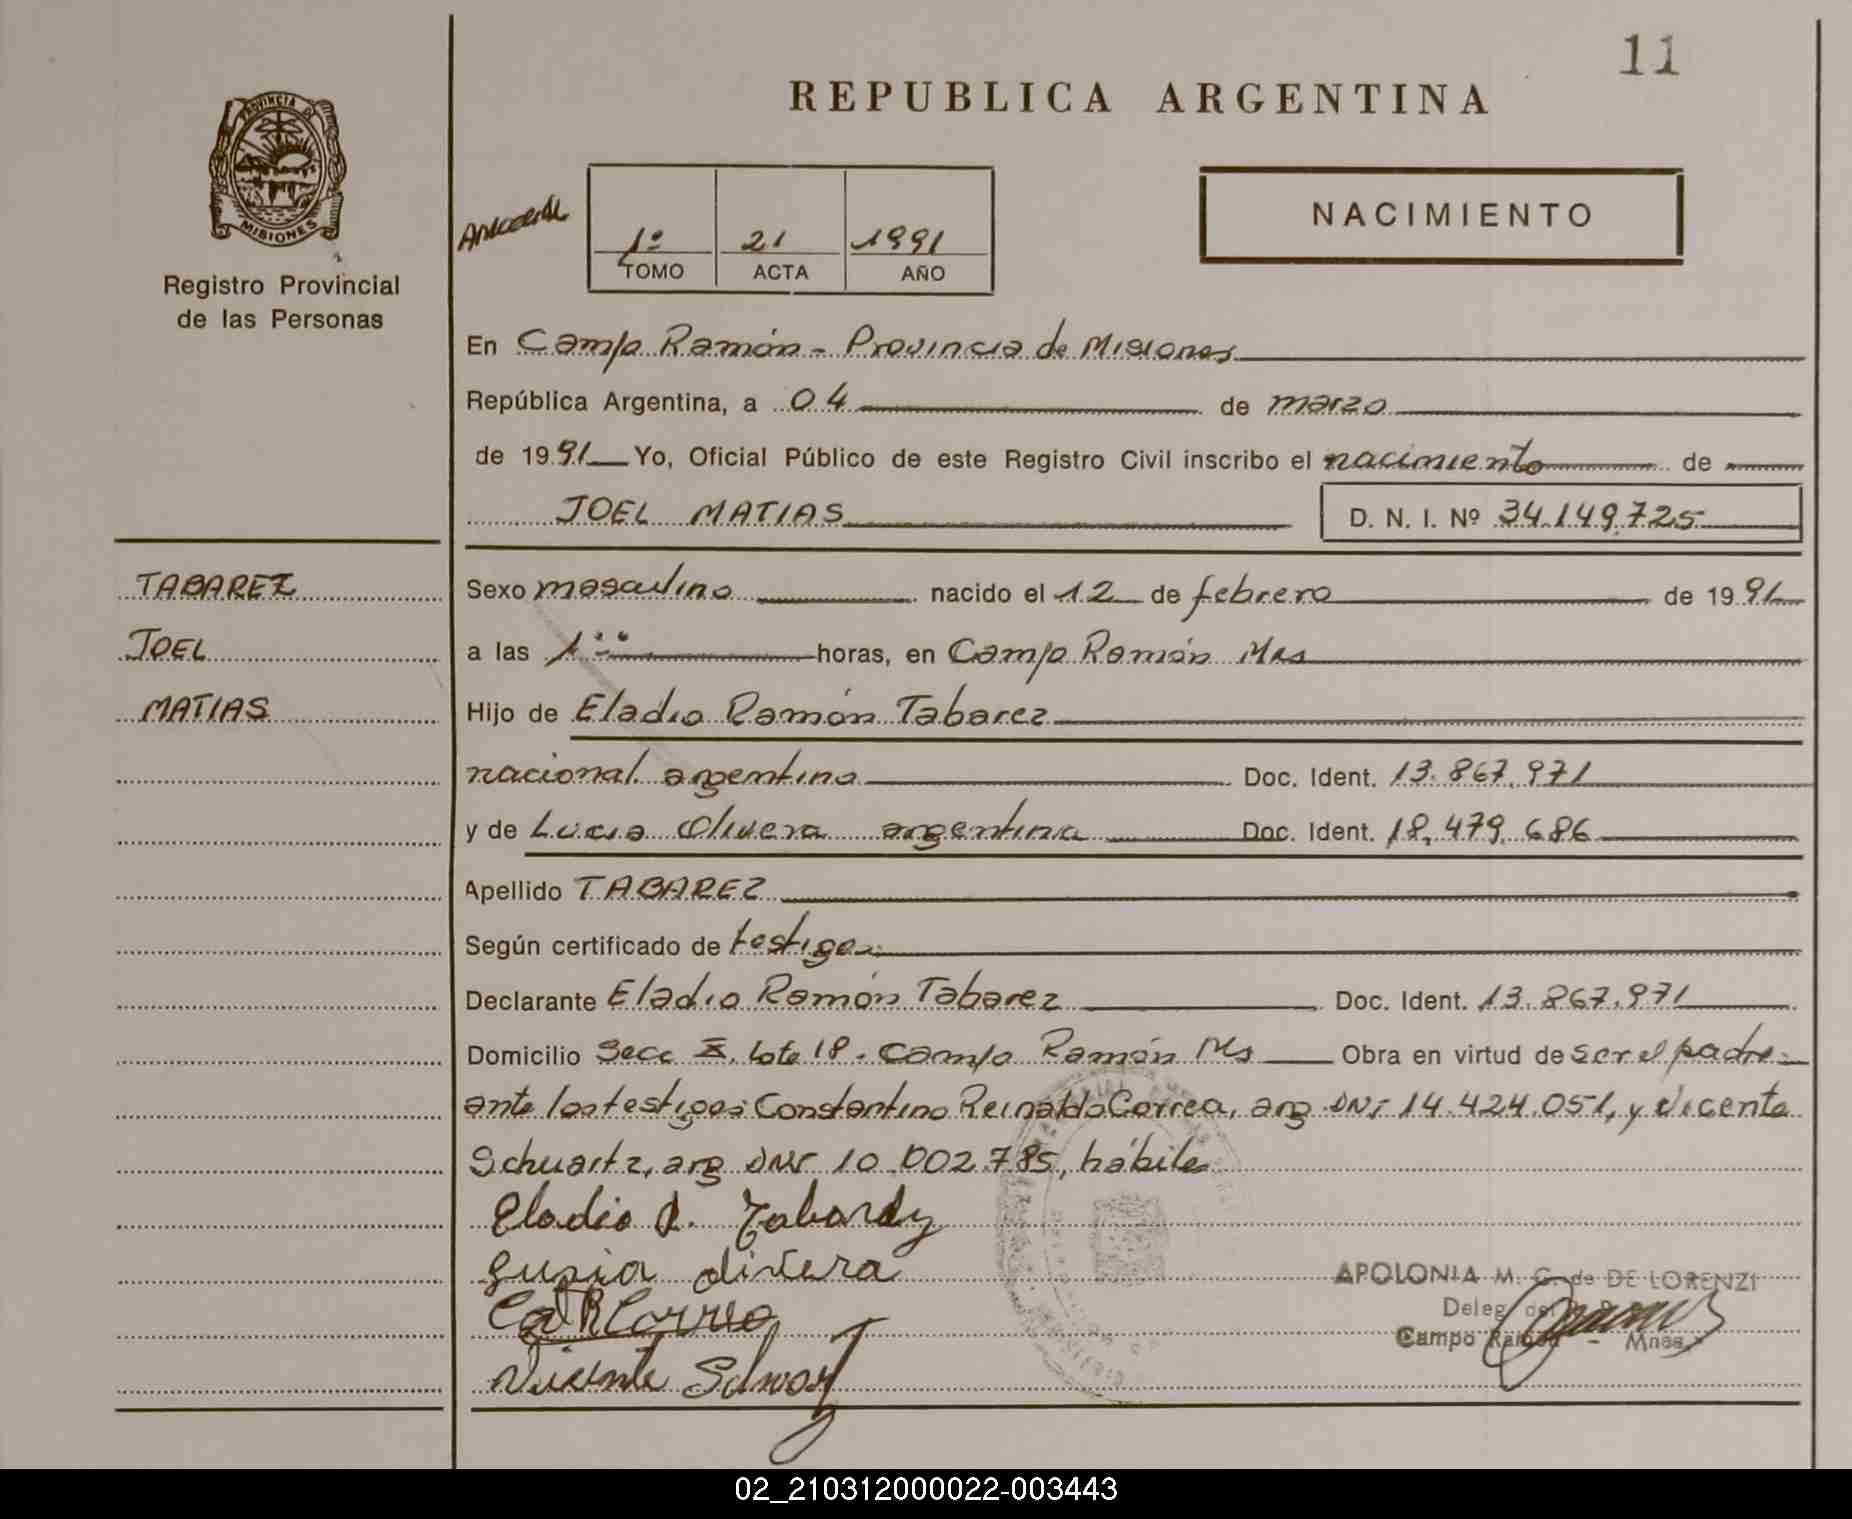 11
REPUBLICA ARGENTINA
PROVINCIA DE
MISIONES
Registro Provincial
de las Personas
1º 21 1991
TOMO ACTA AÑO
NACIMIENTO
En Campo Ramón - Provincia de Misiones
República Argentina, a 04 de marzo
de 1991 Yo, Oficial Público de este Registro Civil inscribo el nacimiento de
JOEL MATIAS D. N. I. Nº 34.149.725
TABAREZ
JOEL
MATIAS
Sexo masculino nacido el 12 de febrero de 1991
a las 1 horas, en Campo Ramón Mns
Hijo de Eladio Ramón Tabarez
nacional argentino Doc. Ident. 13.867.971
y de Lucia Olivera argentina Doc. Ident. 18.479.686
Apellido TABAREZ
Según certificado de testigos
Declarante Eladio Ramón Tabarez Doc. Ident. 13.867.971
Domicilio Secc X. lote 18 - Campo Ramón Ms Obra en virtud de ser el padre
ante los testigos: Constantino Reinaldo Correa, arg DNI 14.424.051, y Vicente
Schuartz, arg DNI 10.002.785, hábiles
Eladio R.
Olivera
Vicente
APOLONIA M. C. de DE LORENZI
Deleg
Campo Ramón - Mnes.
02_210312000022-003443